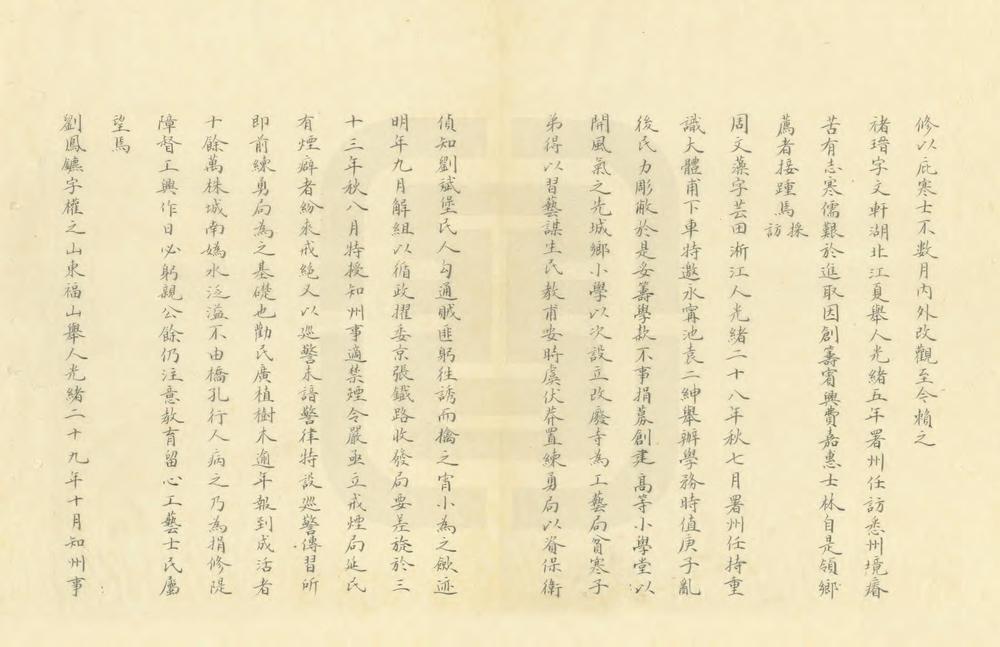 修以庇寒士不数月内外改觀至今賴之
禇瑨字文軒湖北江夏舉人光緒五年署州任訪悉州境瘠
苦有志寒儒艱於進取因創籌賓興費嘉惠士林自是領鄉
薦者接踵焉採訪
周文藻字芸田淅江人光緒二十八年秋七月署州任持重
識大體甫下車特邀永甯池袁二紳舉辦學務時值庚子亂
後民力彫敝於是妥籌學款不事捐募創建髙等小學堂以
開風氣之先城鄉小學以次設立改廢寺為工藝局貧寒子
弟得以習藝謀生民教甫安時虞伏莽置練勇局以資保衛
偵知劉斌堡民人勾通賊匪躬往誘而擒之宵小為之斂迹
明年九月解組以循政擢委京張鐵路收發局要差旋於三
十三年秋八月特授知州事適禁煙令嚴亟立戒煙局延民
有煙癖者紛來戒絕又以巡警未諳警律特設巡警傳習所
即前練勇局為之基礎也勸民廣植樹木逾年報到成活者
十餘萬株城南媯水泛溢不由橋孔行人病之乃為捐修隄
障督工興作日必躬親公餘仍注意教育留心工藝士民屬
望焉
劉鳳鑣字權之山東福山舉人光緒二十九年十月知州事